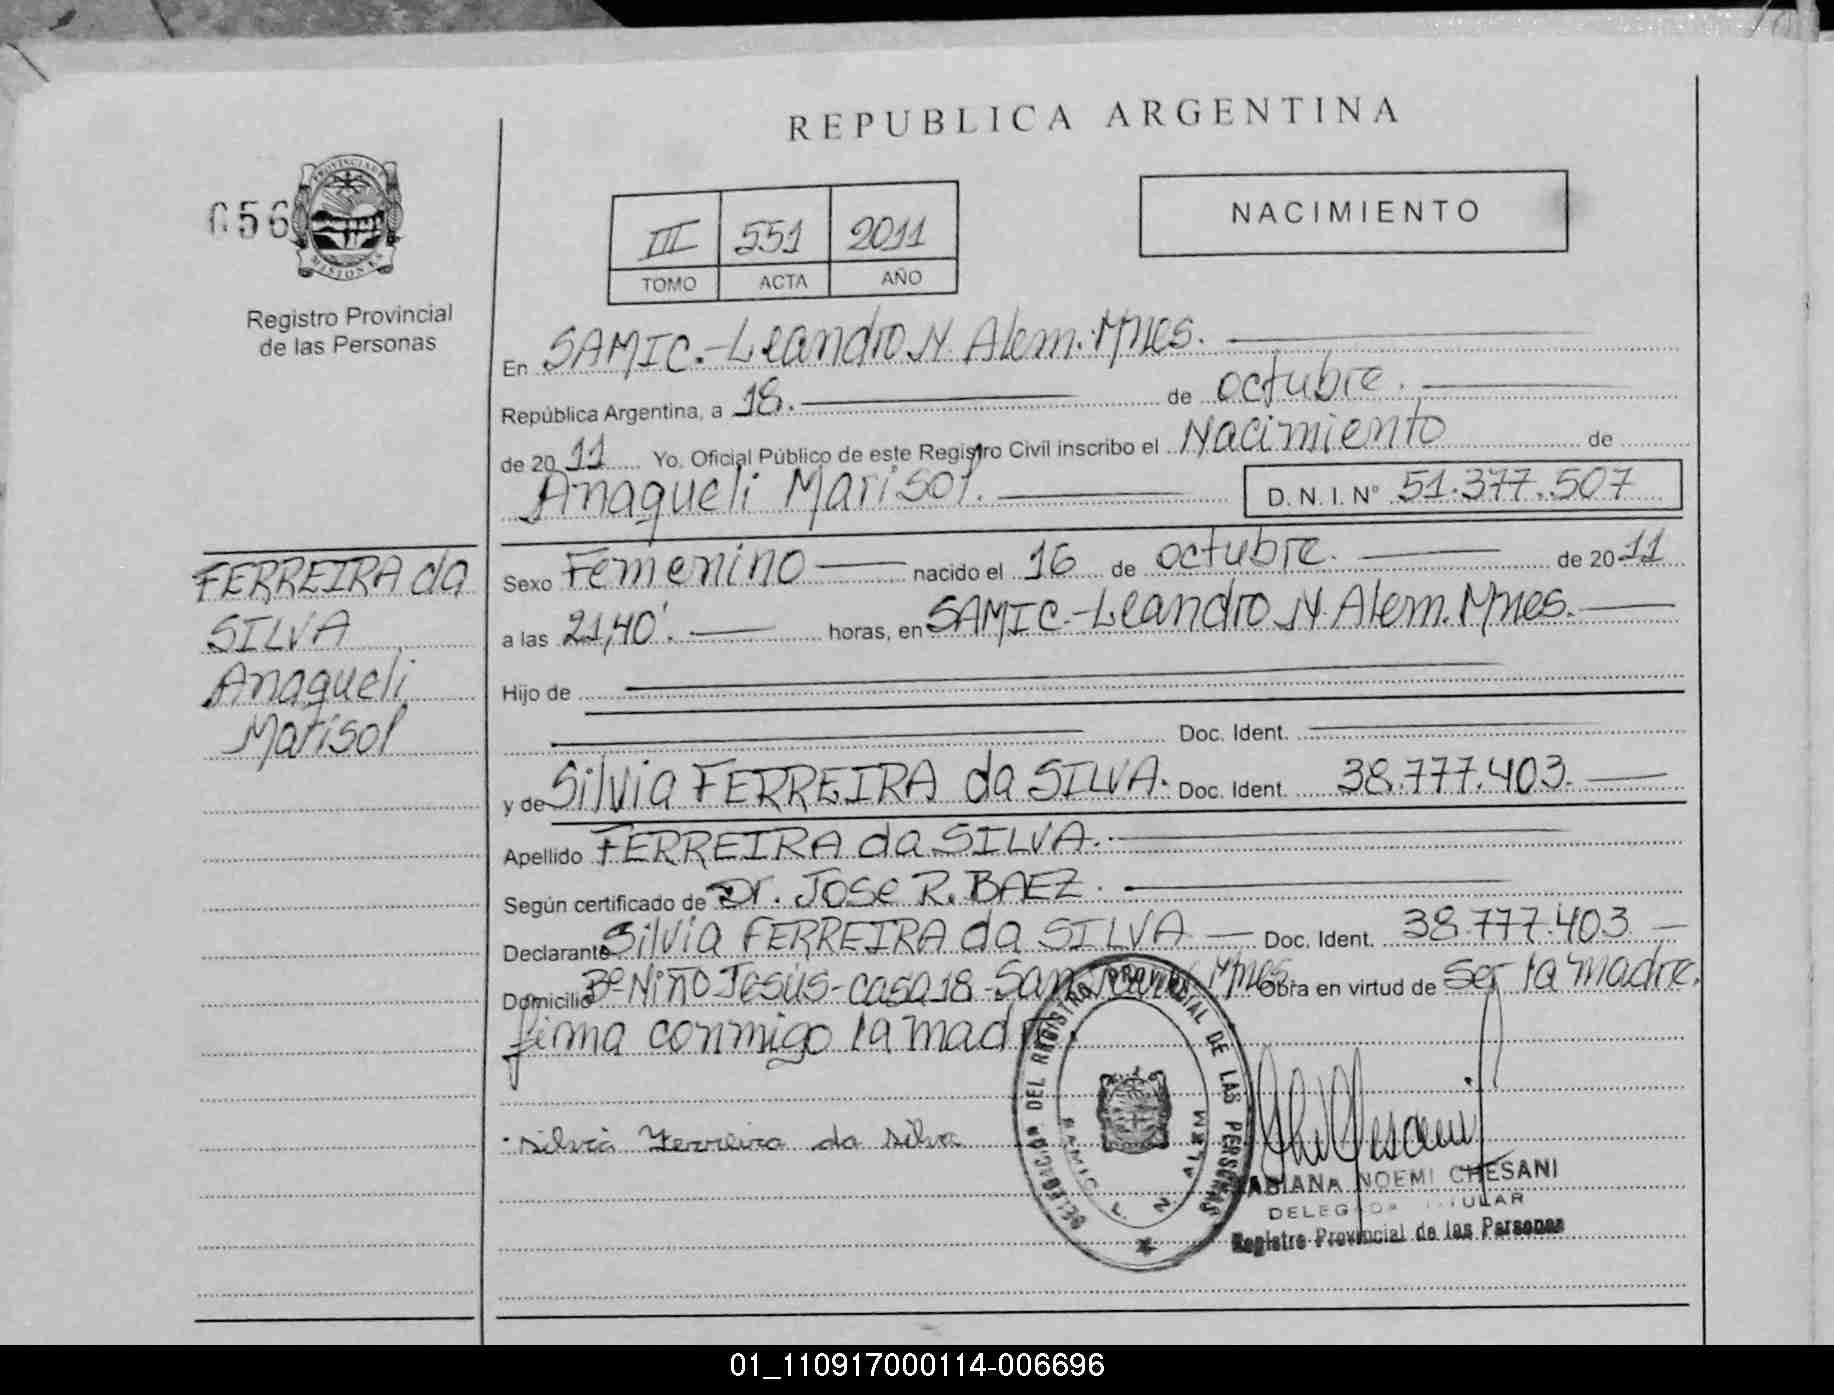 REPUBLICA ARGENTINA
056
PROVINCIA DE
MISIONES
Registro Provincial
de las Personas
III 551 2011
TOMO ACTA AÑO
NACIMIENTO
En SAMIC.-Leandro N. Alem. Mnes.
República Argentina, a 18. de octubre.
de 2011 Yo, Oficial Público de este Registro Civil inscribo el Nacimiento de
Anaqueli Marisol. D. N. I. N° 51.377.507
FERREIRA da
SILVA
Anaqueli
Marisol
Sexo Femenino nacido el 16 de octubre. de 2011
a las 21,40'. horas, en SAMIC.-Leandro N. Alem. Mnes.
Hijo de
Doc. Ident.
y de Silvia FERREIRA da SILVA. Doc. Ident. 38.777.403.
Apellido FERREIRA da SILVA.
Según certificado de Dr. Jose R. BAEZ.
Declarante Silvia FERREIRA da SILVA Doc. Ident. 38.777.403
Domicilio B° Niño Jesús-casa 18-San Mnes. Obra en virtud de ser la madre.
firma conmigo la madre.
silvia Ferreira da silva
DELEGACION DEL REGISTRO PROVINCIAL DE LAS PERSONAS
SAMIC L. N. ALEM
FABIANA NOEMI CHESANI
DELEGADA TITULAR
Registro Provincial de las Personas
01_110917000114-006696